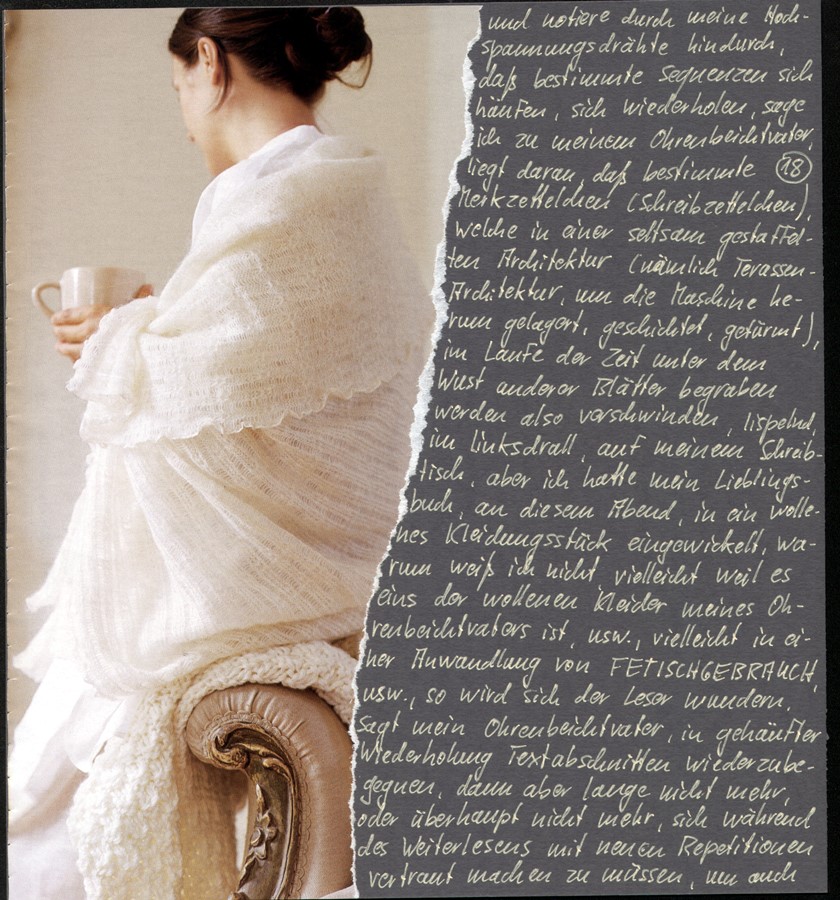 und notiere durch meine Hoch-
spannungsdrähte hindurch,
daß bestimmte Sequenzen sich
häufen, sich wiederholen, sage
ich zu meinem Ohrenbeichtvater,
liegt daran, daß bestimmte (18)
Merkzettelchen (Schreibzettelchen),
welche in einer seltsam gestaffel-
ten Architektur (nämlich Terassen-
Architektur, um die Maschine he-
rum gelagert, geschichtet, getürmt),
im Laufe der Zeit unter dem
Wust anderer Blätter begraben
werden also verschwinden, lispelnd,
im Linksdrall, auf meinem Schreib-
tisch, aber ich hatte mein Lieblings-
buch, an diesem Abend, in ein wolle-
nes Kleidungsstück eingewickelt, wa-
rum weiß ich nicht vielleicht weil es
eins der wollenen Kleider meines Oh-
renbeichtvaters ist, usw., vielleicht in ei-
ner Anwandlung von FETISCHGEBRAUCH,
usw., so wird sich der Leser wundern,
sagt mein Ohrenbeichtvater, in gehäufter
Wiederholung Textabschnitten wiederzube-
gegnen, dann aber lange nicht mehr,
oder überhaupt nicht mehr, sich während
des Weiterlesens mit neuen Repetitionen
vertraut machen zu müssen, um auch